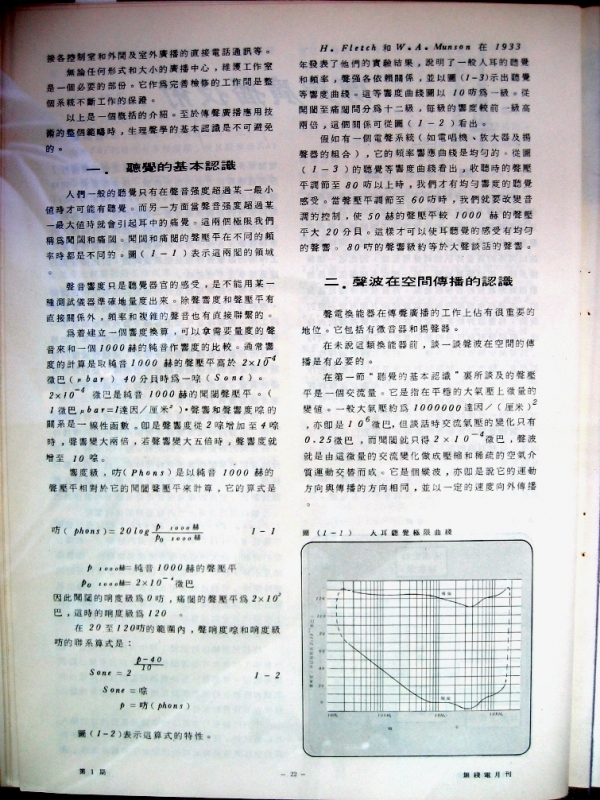 接各控制室和外間及室外廣播的直接電話通訊等。
無論任何形式和大小的廣播中心，維護工作室
是一個必要的部份。它作爲完善檢修的工作間是整
個系統不斷工作的保證。
以上是一個概括的介紹。至於傳聲廣播應用技
術的整個範疇時，生理聲學的基本認識是不可避免
的。
一． 聽覺的基本認識
人們一般的聽覺只有在聲音强度超過某一最小
値時才可能有聽覺。而另一方面當聲音强度超過某
一最大値時就會引起耳中的痛覺。這兩個極限我們
稱爲聞閾和痛閾。聞閾和痛閾的聲壓平在不同的頻
率時都是不同的。圖(1-1)表示這兩閾的領域
。
聲音響度只是聽覺器官的感受，是不能用某一
種測試儀器準確地量度出來。除聲響度和聲壓平有
直接關係外，頻率和複雜的聲音也有直接聯繫的。
爲着建立一個響度換算，可以拿需要量度的聲
音來和一個1000赫的純音作響度的比較。通常響
度的計算是取純音1000赫的聲壓平高於 2×10⁻⁴
微巴(μbar) 40分貝時爲一㖔(Sone)。
2×10⁻⁴ 微巴是純音 1000 赫的聞閾聲壓平。(
1微巴μbar=1達因/厘米²)•聲響和聲響度㖔的
關係是一線性函數。卽是聲響度從2㖔增加至4㖔
時，聲響變大兩倍，若聲響變大五倍時，聲響度就
增至 10㖔。
響度級，吩(Phons)是以純音 1000 赫的
聲壓平相對於它的聞閾聲壓平來計算，它的算式是
吩( phons)=20log p 1000赫 / p₀ 1000赫 1-1
p 1000赫=純音1000赫的聲壓平
p₀ 1000赫=2×10⁻⁴微巴
因此聞閾的响度級爲0吩，痛閾的聲壓平爲2×10²
巴，這時的响度級爲120 。
在 20至120吩的範圍內，聲响度㖔和响度級
吩的聯系算式是：
Sone=2 p-40 / 10 1-2
Sone=㖔
p=吩(phons)
圖(1-2)表示這算式的特性。
H. Fletch 和 W.A. Munson 在 1933
年發表了他們的實驗結果，說明了一般人耳的聽覺
和頻率，聲强各依賴關係，並以圖(1-3)示出聽覺
等響度曲綫。這等響度曲綫圖以 10吩爲一級。從
聞閾至痛閾間分爲十二級，每級的響度較前一級高
兩倍，這個關係可從圖(1-2)看出。
假如有一個電聲系統(如電唱機、放大器及揚
聲器的組合)，它的頻率響應曲綫是均勻的。從圖
(1-3)的聽覺等響度曲綫看出，收聽時的聲壓
平調節至 80吩以上時，我們才有均勻響度的聽覺
感受。當聲壓平調節至 60吩時，我們就要改變音
調的控制，使 50赫的聲壓平較 1000 赫的聲壓
平大 20分貝。這樣才可以使耳聽覺的感受有均勻
的聲響。80吩的聲響級約等於大聲談話的聲響。
二．聲波在空間傳播的認識
聲電換能器在傳聲廣播的工作上佔有很重要的
地位。它包括有微音器和揚聲器。
在未說這類換能器前，談一談聲波在空間的傳
播是有必要的。
在第一節“聽覺的基本認識”裏所談及的聲壓
平是一個交流量。它是指在平穩的大氣壓上微量的
變値。一般大氣壓約爲1000000達因/(厘米)²
，亦卽是10⁶微巴，但談話時交流氣壓的變化只有
0.25微巴，而聞閾就只得2×10⁻⁴微巴，聲波
就是由這微量的交流變化做成壓縮和稀疏的空氣介
質運動交替而成。它是個縱波，亦卽是說它的運動
方向與傳播的方向相同，並以一定的速度向外傳播
。
圖(1-1) 人耳聽覺極限曲綫
第1期
- 22 -
無綫電月刊